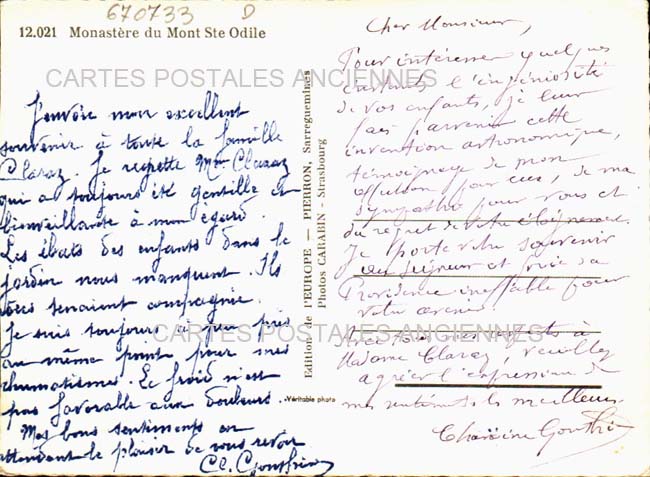 670733 D
12.021 Monastère du Mont Ste Odile
CARTES POSTALES ANCIENNES
J'envoie mon excellent
souvenir à toute la famille
Claraz. Je regrette Mme Claraz
qui a toujours été gentille et
bienveillante à mon égard.
Les ébats des enfants dans le
jardin nous manquent. Ils
nous tenaient compagnie.
Je suis toujours à peu près
au même point pour mes
rhumatismes. Le froid n'est
pas favorable aux douleurs.
Mes bons sentiments en
attendant le plaisir de vous revoir
Cl. Gonthier
Edition de l'EUROPE — PIERRON, Sarreguemines
Photos CARABIN - Strasbourg
Véritable photo
Cher Monsieur,
Pour intéresser quelques
instants l'ingéniosité
de vos enfants, je leur
fais parvenir cette
invention astronomique,
témoignage de mon
affection pour eux, de ma
sympathie pour vous et
du regret de votre éloignement.
Je porte votre souvenir
au Seigneur et prie sa
Providence ineffable pour
votre avenir.
CARTES POSTALES ANCIENNES
respects à
Madame Claraz, veuillez
agréer l'expression de
mes sentiments les meilleurs.
Gonthier